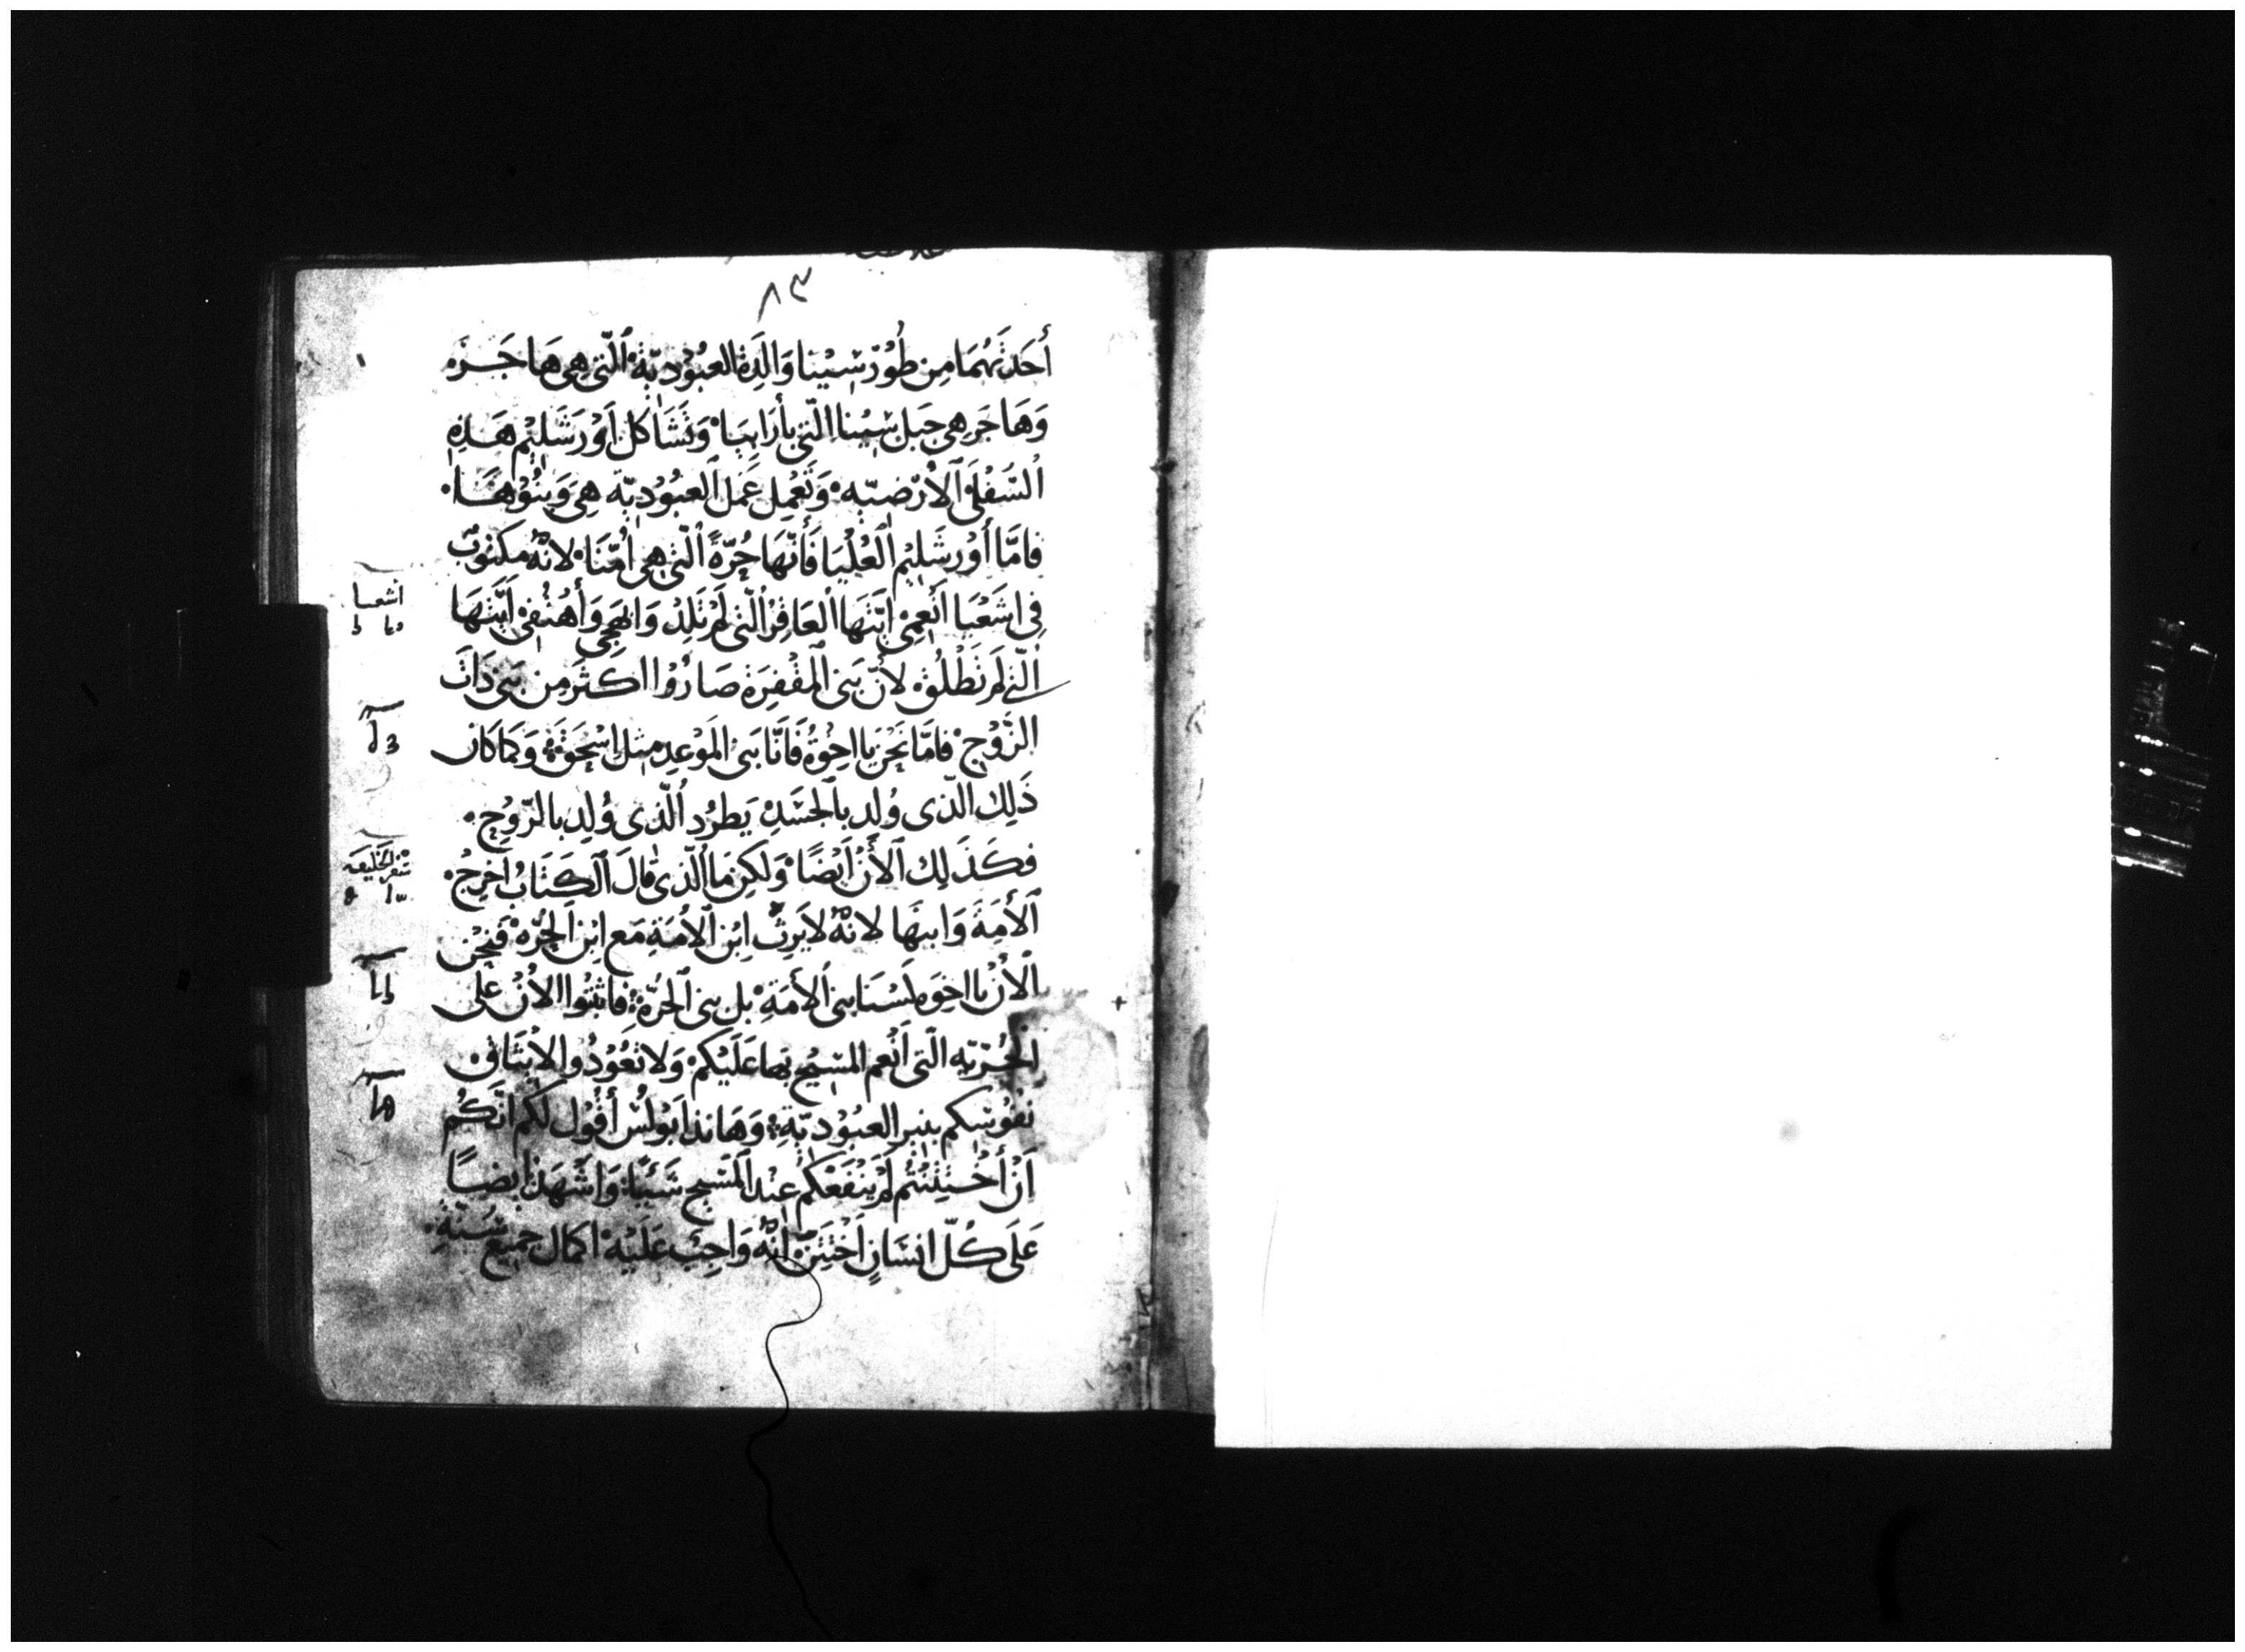 ٨٣
أُحَدَثهُمَا مِن طُوْرْ سِيْنا وَالَدِة العبُوْدِيّةِ الّتى هِى هَاجَرَه
وَهَا جَر هِى جَبل سِيْنا التى بأرَابِيَا وَتَشَاكل اُوْرَشَلِيْم هَذِهِ
السُفْلَى الأرْضيّه وَتَعْمِل عَمل العبُوْديّه هِى وَبنُوْهَا
فامَّا أوْرشَلِيْم الْعُلْيَا فَأنّهَا حُرّةً الّتى هِى اُمّنَا لانّهُ مكتوبٌ
فِى اشَعْيَا اَنْعِمِىْ ايّتهَا العَاقِرْ الّتى لَمْ تَلِدْ وَابهَجِى وَأهْتِفِىْ اَيّتهَا
الّتى لَم تَطْلُقْ لأنّ بَنى المُقْفِرَة صَارُوْا اكثَر مِن بَنِى ذَاتَ
الزَّوْج فامّا نَحْن يا اخوْةُ فَانّا بَنى المَوْعِدِ مثل اِسْحَق وَكمَا كان
ذَلِك الّذى وُلِد بالجسَدِ يَطرُد الّذى وُلِد بالرّوْحِ
فكَذَلِك الأنْ اَيْضًا وَلكِن مَا الّذى قالَ الكِتَابُ اخرِجُ
الأمَةَ وَابنهَا لانّهُ لاَ يَرِثُ اِبْن الأمَةِ مَع اِبْن الحُرّه فَنحْن
الأنْ يا اخوَه لَسْنَا بنى الأمَةِ بل بنى الحُرّة فاثبتُوا الأنْ على
الحُرّيّه الّتى اَنْعم المسِيْح بهَا عَلَيْكم وَلا تَعُوْدُوا لايثَاق
نفُوْسَكم بنير العبُوْديّة وَهَانذا بَوْلُسْ أقُوْل لكم انّكُم
اَنْ أخْتتنْتُم لَمْ يَنْفَعكُم عِنْد المَسِيح شَيًا وَاشْهَدْ ايضًا
عَلَى كُلّ انسَانٍ اَخْتَتَنْ اَنّهُ وَاجِبٌ عَلَيْه اكمال جميع سُنّةِ
اشعيا
سفر الخليقه